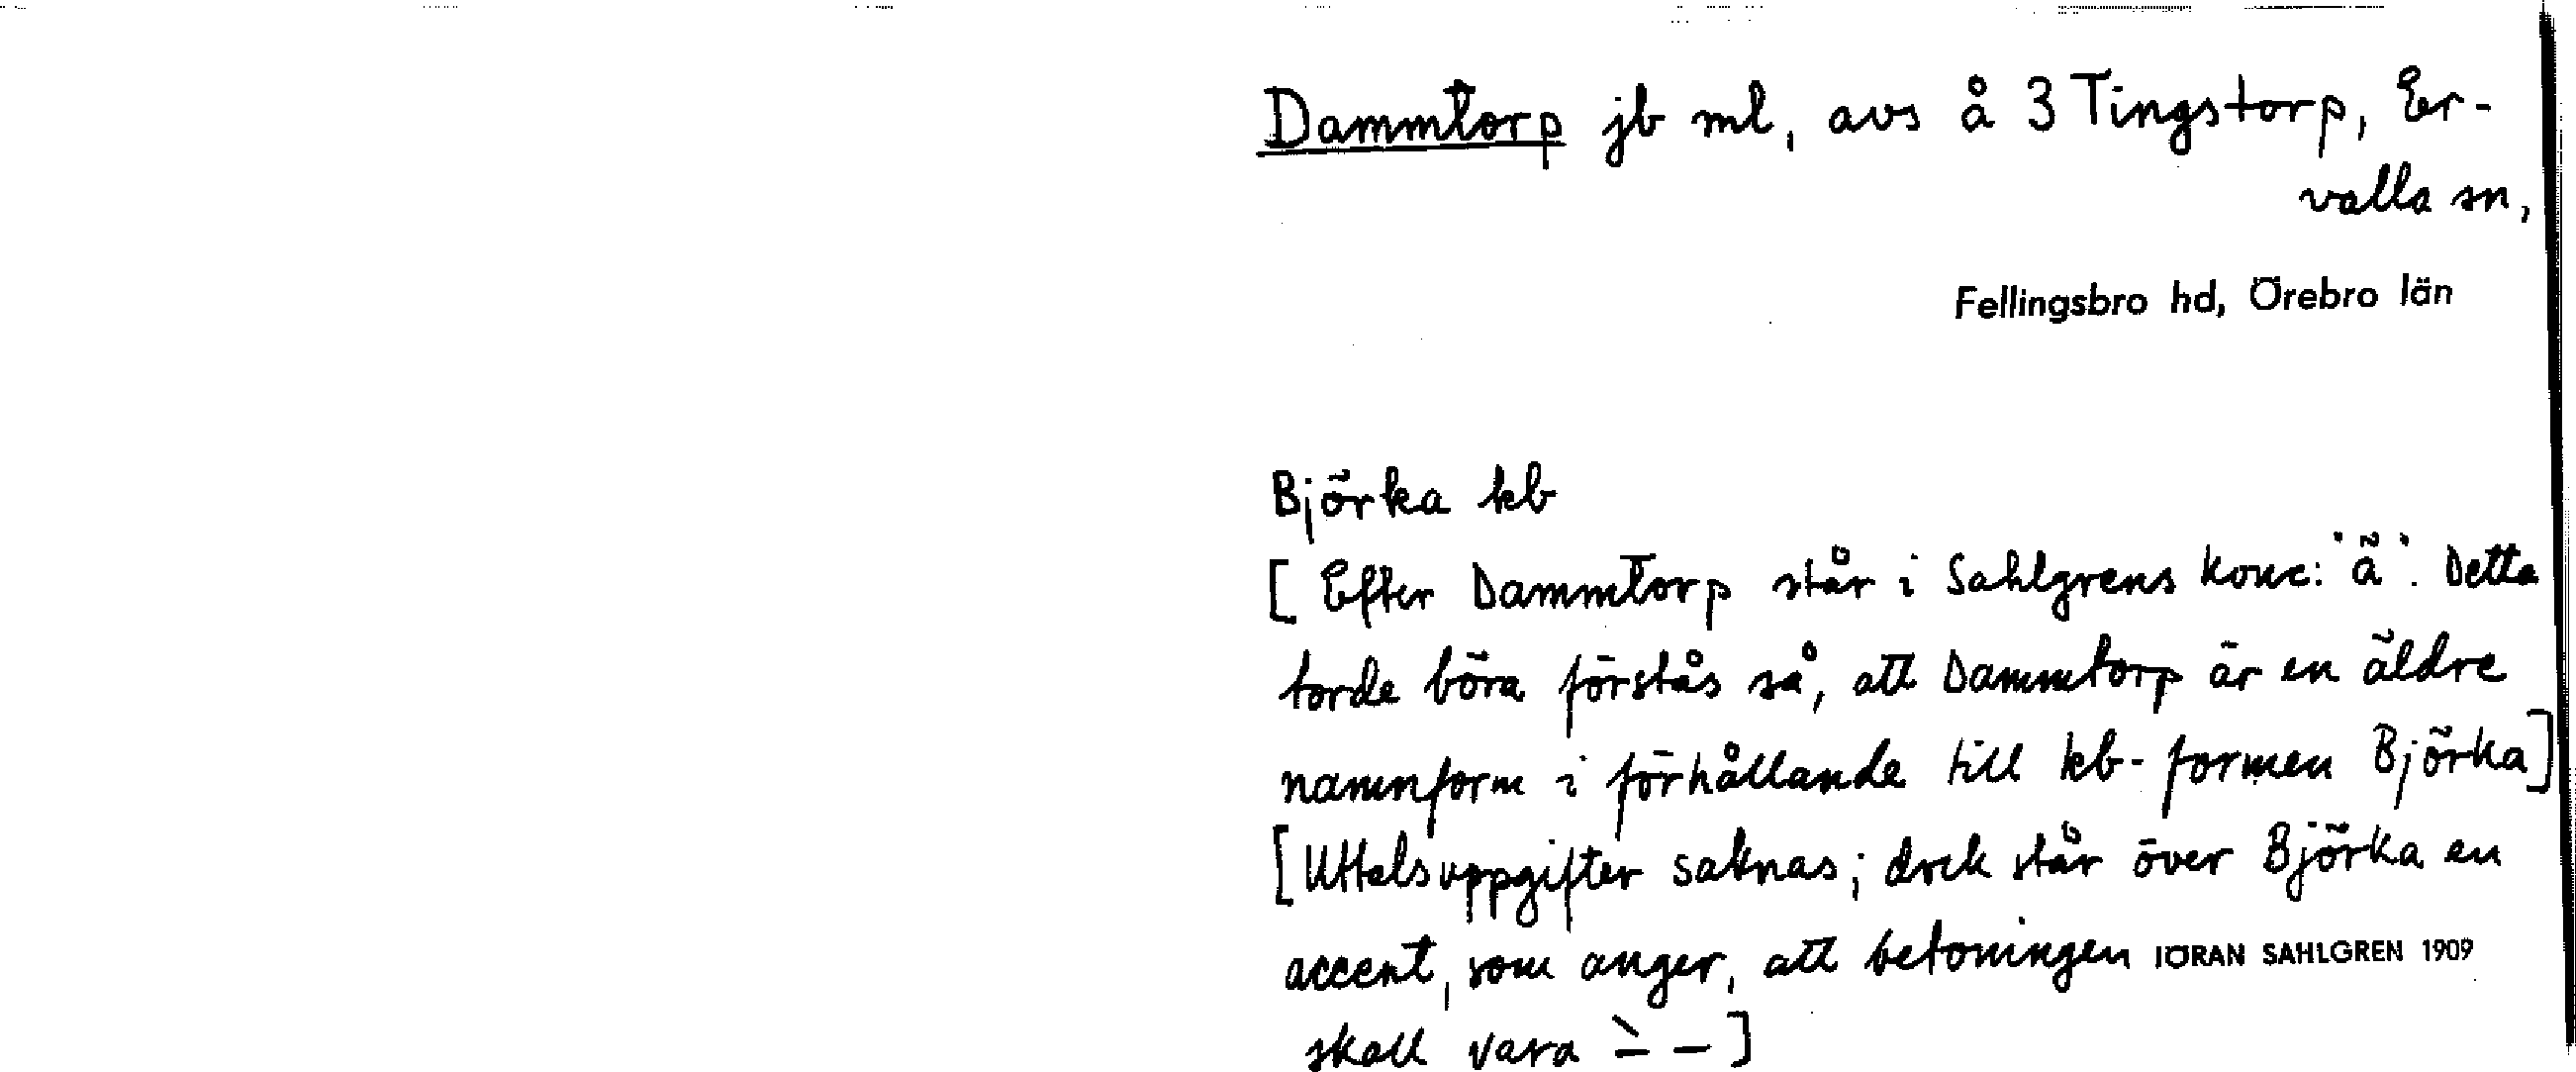 Dammtorp jb ml, avs å 3 Tingstorp, Er-
valla sn,
Fellingsbro hd, Örebro län
Björka kb
[Efter Dammtorp står i Sahlgrens konc: "ä". Detta
torde böra förstås så, att Dammtorp är en äldre
namnform i förhållande till kb-formen Björka]
[Uttalsuppgifter saknas; dock står över Björka en
accent, som anger, att betoningen JÖRAN SAHLGREN 1909
skall vara –̀ –]